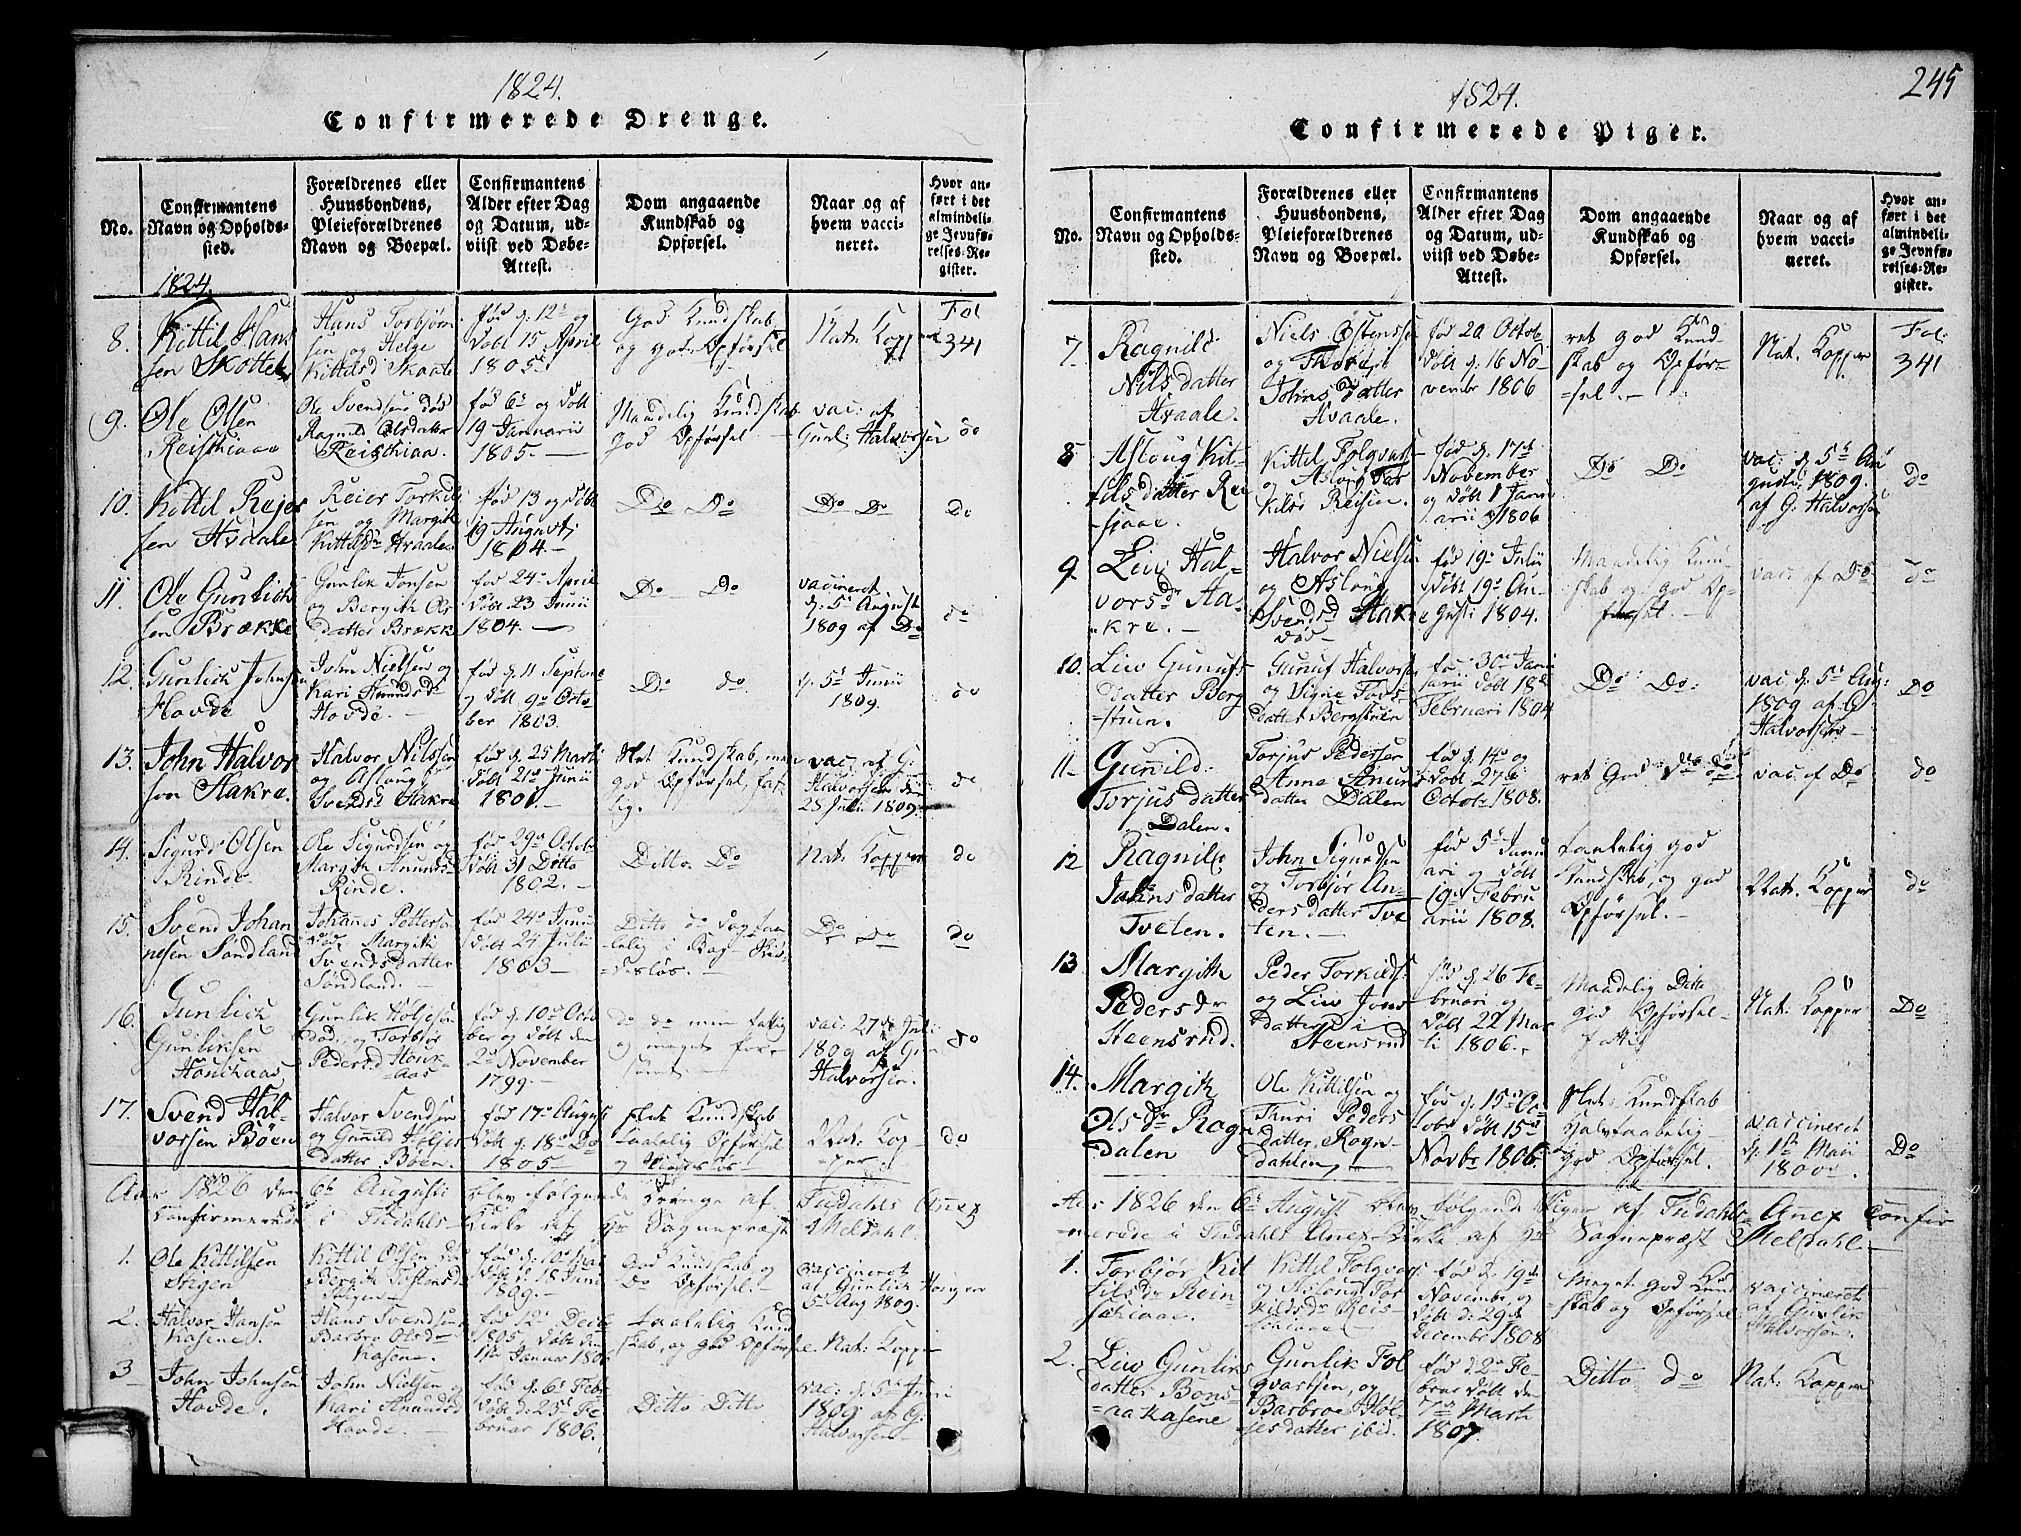 1824.
Confirmerede Drenge.
No.
Confirmantens
Navn og Opholds-
sted.
Forældrenes eller
Huusbondens,
Pleieforældrenes
Navn og Boepæl.
Confirmantens
Alder efter Dag
og Datum, ud-
viist ved Døbe-
Attest.
Dom angaaende
Kundskab og
Opførsel.
Naar og af
hvem vacci-
neret.
Hvor an-
ført i det
almindeli-
ge Jevnfø-
relses-Re-
gister.
1824.
8.
Kittil Han
sen
Hans Torbjørn
sen og Helge
Kittilsd Skaate
fød d. 12 og
døbt 15 April
1805
God Kundskab
og god Opførsel
Nat: Kopper
Fol
341
9.
Ole Olsen
Reiskiaaa
Ole Svendsen død
Ragnild Olsdatter
Reiskiaa
fød 6 og døbt
19 Januarii
1805.
Maadelig Kundskab
god Opførsel
vac: af
Gunl: Halvorsen
do
10.
Kittil Rejer
sen
Reier Torkild
sen og Margit
Kittilsdr Hvaale
fød 13 og døbt
19 Augusti
1804.
Do Do
Do Do
Do
11.
Ole Gunlich
sen Brække
Gunlik Jonsen
og Bergith Ols
datter Brække
fød 24 April
døbt 23 Junii
1804.
Do Do
vaccineret
d. 5 August
1809 af Do
do
12.
Gunlich Johnsen
Hovde
John Nielsen og
Kari Amundsdr
Hovde.
fød d. 11 Septbr
og døbt 9 Octo
ber 1803.
Do do
d. 5 Junii
1809.
do
13.
John Halvor
sen Hakre.
Halvor Nilssen
og Aslaug
Svendsd Hakre
fød d. 25 Marti
døbt 21 Junii
1801.
Slet Kundskab, men
god Opførsel, fat-
lig.
vac. af G.
Halvorsen den
28 Juli 1809.
do
14.
Sigurd Olsen
Rinde.
Ole Sigurdsen og
Margith Amunds
Rinde.
fød 29 Octob
døbt 31 Ditto
1802.
Ditto Do
Nat: Kopper
do
15.
Svend Johan
nesen Sondland
Johannes Petterse
død, Margith
Svendsdatter
Sondland.
fød 24 Junii
døbt 24 Julii
1803
Do Do
do
16.
Gunlich
Gunliksen
Gunlik Holjesen
død, og Torbjør
Pedersd
fød d. 10 Octo
ber og døbt den
2 November
1799.
do do men fattig
vac: 27 Juli
1809 af Gun
Halvorsen.
do
17.
Svend Hal-
vorsen Bøen
Halvor Svendsen
og Gunnild Holjes
datter Bøen.
fød 17 August
døbt d. 18 Do
1805
slet Kundskab
taalelig Opførsel
Nat: Kop-
per
do
Aar 1826 den 6 Augusti blev følgende Drenge af Tudahls Anex
Confirmerede i Tudahls Kirke af Hr Sognepræst Meldahl.
1.
Ole Kittilsen
Stigen
Kittil Olsen død
Bergit Tostensd
Stigen
døbt d. 18 Juni
1809.
God Kundskab og
Do Opførsel.
vaccineret
af Gunlich
5 Aug 1809.
2.
Halvor Hansen
Kasene.
Hans Svendsen
Barbro Olsdr
Kasene.
fød 12 Decb
1805, døbt den
Januar 1806
taalelig Kund
skab, og god Opførsel
Nat: Kopper
3
John Johnsen
Hovde.
John Nielsen og
Kari Amundsd
Hovde
fød d. 6 Febr
døbt d. 23 Fe
bruar 1806.
Ditto Ditto
vac: d. 5 Juni
1809 af G.
Halvorsen
245
1824.
Confirmerede Piger.
No.
Confirmantens
Navn og Opholds-
sted.
Forældrenes eller
Huusbondens,
Pleieforældrenes
Navn og Boepæl.
Confirmantens
Alder efter Dag
og Datum, ud-
viist ved Døbe-
Attest.
Dom angaaende
Kundskab og
Opførsel.
Naar og af
hvem vacci-
neret.
Hvor an-
ført i det
almindeli-
ge Jevnfø-
relses-Re-
gister.
7.
Ragnild
Nilsdatter
Hvaale.
Niels Østensen
og Thore
Johnsdatter
Hvaale.
fød 20 Octob
døbt d. 16 No
vembr 1806
ret god Kund
skab og Opfør-
sel.
Nat. Kopper
Fol.
341
8
Aslaug Kit-
tilsdatter Rei
sjaae.
Kittil Folqvart
og Aslaug Tor
kilsd
fød d. 17
November
og døbt 1 Janu
arii 1806
Do Do
vac. d. 5 Au
gusti, 1809.
af G. Halvorsen
do
9.
Liv Hal-
vorsdr Ha-
kre.
Halvor Nielsen
og Aslaug
Svendsd Hakre
død
fød 19 Julii
døbt 19 Au-
gusti 1804.
Maadelig Kund
skab og god Op-
vac. af Do
do
10.
Liv Gunufs
datter Berg
stuen.
Gunuf Halvorsen
og Signe Tovs
datter Bergstuen
fød 30 Janu
arii døbt 18
Februari 1804
Do Do.
vac d. 5 Aug:
1809 af G
Halvorsen
Do
11
Gunnild
Torjusdatter
Dalen.
Torjus Pedersen
Anne Amunds
datter Dalen
fød d. 14 og
døbt 27
Octob 1808.
ret God Do do
vac. af Do
do
12
Ragnild
Johnsdatter
Tveten.
John Sigurdsen
og Torbjør An-
dersdatter Tve
ten.
fød 5 Janu
ari og døbt
19 Febru
arii 1808.
taalelig god
Kundskab, og god
Opførsel.
Nat. Kopper
do
13
Margith
Pedersdr
Steensrud.
Peder Torkilds:
og Liv Jons
datter i
Steensrud
fød d. 26 Fe-
bruari og
døbt 22 Mar
ti 1806.
Maadelig Ditto
god Opførsel
fattig
Nat: Kopper
Do
14.
Margith
Olsdr Ragn
dalen
Ole Kittilsen og
Thuri Peders
datter Rogn-
dahlen,
fød d. 15 Oc
tobr døbt 15
Novbr 1806.
slet: Kundskab
god Opførsel.
vaccineret
d. 1 Maii
Do
Aar 1826 den 6 August blev følgende Piger af Tudahls Anex Confir
merede i Tudahls Anex-Kirke af Hr Sognepræst Meldahl.
1.
Torbjør Kit
tilsdr Rein
sækiaae.
Kittil Folqvars
og Aslaug Tor
kildsdr Reis
fød d. 19
November og
døbt d. 29
December 1808
Meget god Kund
skab og Opførsel
vaccineret
af Gunlik
Halvorsen.
2.
Liv Gunliks
datter Bons
aakasene
Gunlik Fol
qvartsen, og
Barbroe Hol-
jesdatter ibid.
fød d. 2 Fe
bruar døbt den
7 Marti
1807
Ditto do
Nat: Kopper